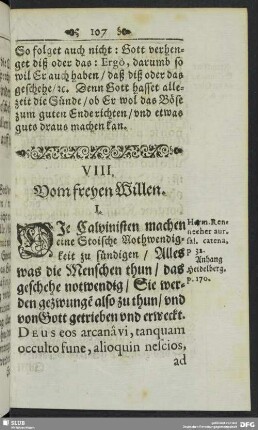 107
So folget auch nicht: Gott verhen-
get diß oder das: Ergò, darumb so
wil Er auch haben / daß diß oder das
geschehe / ꝛc. Denn Gott hasset alle-
zeit die Sünde / ob Er wol das Böse
zum guten Ende richten / vnd etwas
guts draus machen kan.
VIII.
Vom freyen Willen.
I.
DIe Calvinisten machen
eine Stoische Nothwendig-
keit zu sündigen / Alles
was die Menschen thun / das
geschehe notwendig / Sie wer-
den gezwungẽ also zu thun / vnd
von Gott getrieben vnd erweckt.
DEUS eos arcanâ vi, tanquam
occulto fune, alioquin nescios,
ad
Herm. Ren-
necher aur.
sal. catena,
p 32.
Anhang
Heidelberg.
p. 170.
SLUB
DFG